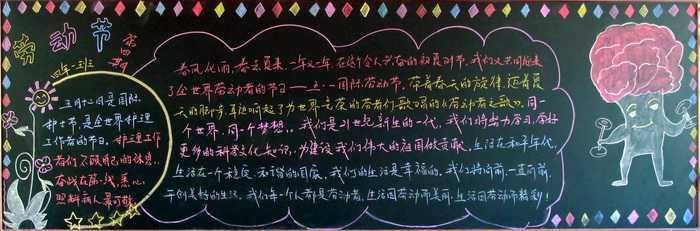 劳动节
第四期
四年一班
五月十二日是国际
护士节,是全世界护理
工作者的节日。护理工作
者们
照料病人最可敬
春风化雨,春去夏来,一年又一年,在这个令人兴奋的初夏时节,我们又共同迎来
了全世界劳动者的节日——五·一国际劳动节。带着春天的旋律,迈着夏
天的脚步,耳边响起了为世界完美的劳者们歌唱的《劳动者之歌》。同一
个世界,同一个梦想,我们是21世纪新生的一代,我们将努力学习,学好
更多的科学文化知识,为建设我们伟大的祖国做贡献。生活在和平年代,
生活在一个稳定、和谐的国家,我们的生活是幸福的,我们将向前,一直向前,
开创美好的生活。我们每一个人都是劳动者,生活因劳动而美丽,生活因劳动而精彩!